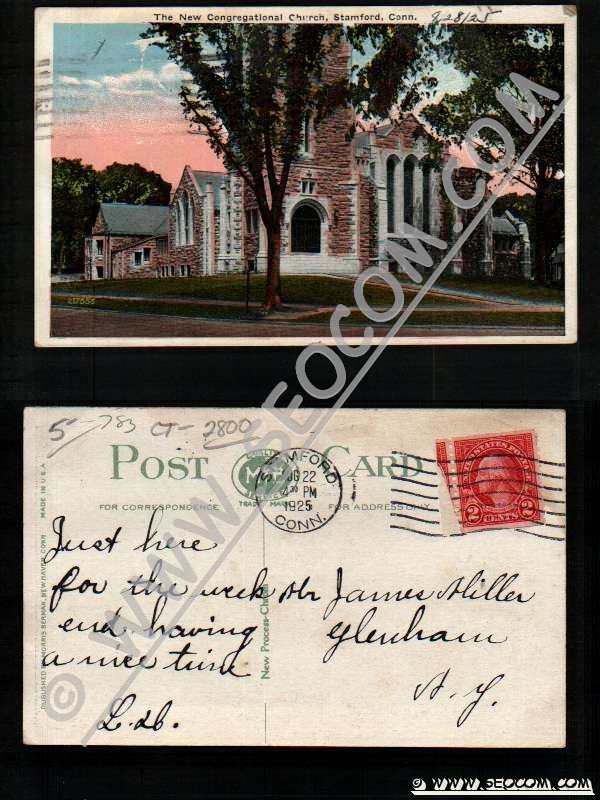 The New Congregational Church, Stamford, Conn.
9/28/25
217655
5-783 CT-2800
POST CARD
FOR CORRESPONDENCE
FOR ADDRESS ONLY
TRADE MARK
STAMFORD
AUG 22
PM
1925
CONN.
UNITED STATES POSTAGE
2 CENTS 2
MADE IN U.S.A.
PUBLISHED BY MORRIS BERMAN, NEW HAVEN, CONN.
New Process
Just here
for the week
end having
a nice time
Mr James Miller
Glenham
N. Y.
© WWW.SEOCOM.COM
© WWW.SEOCOM.COM